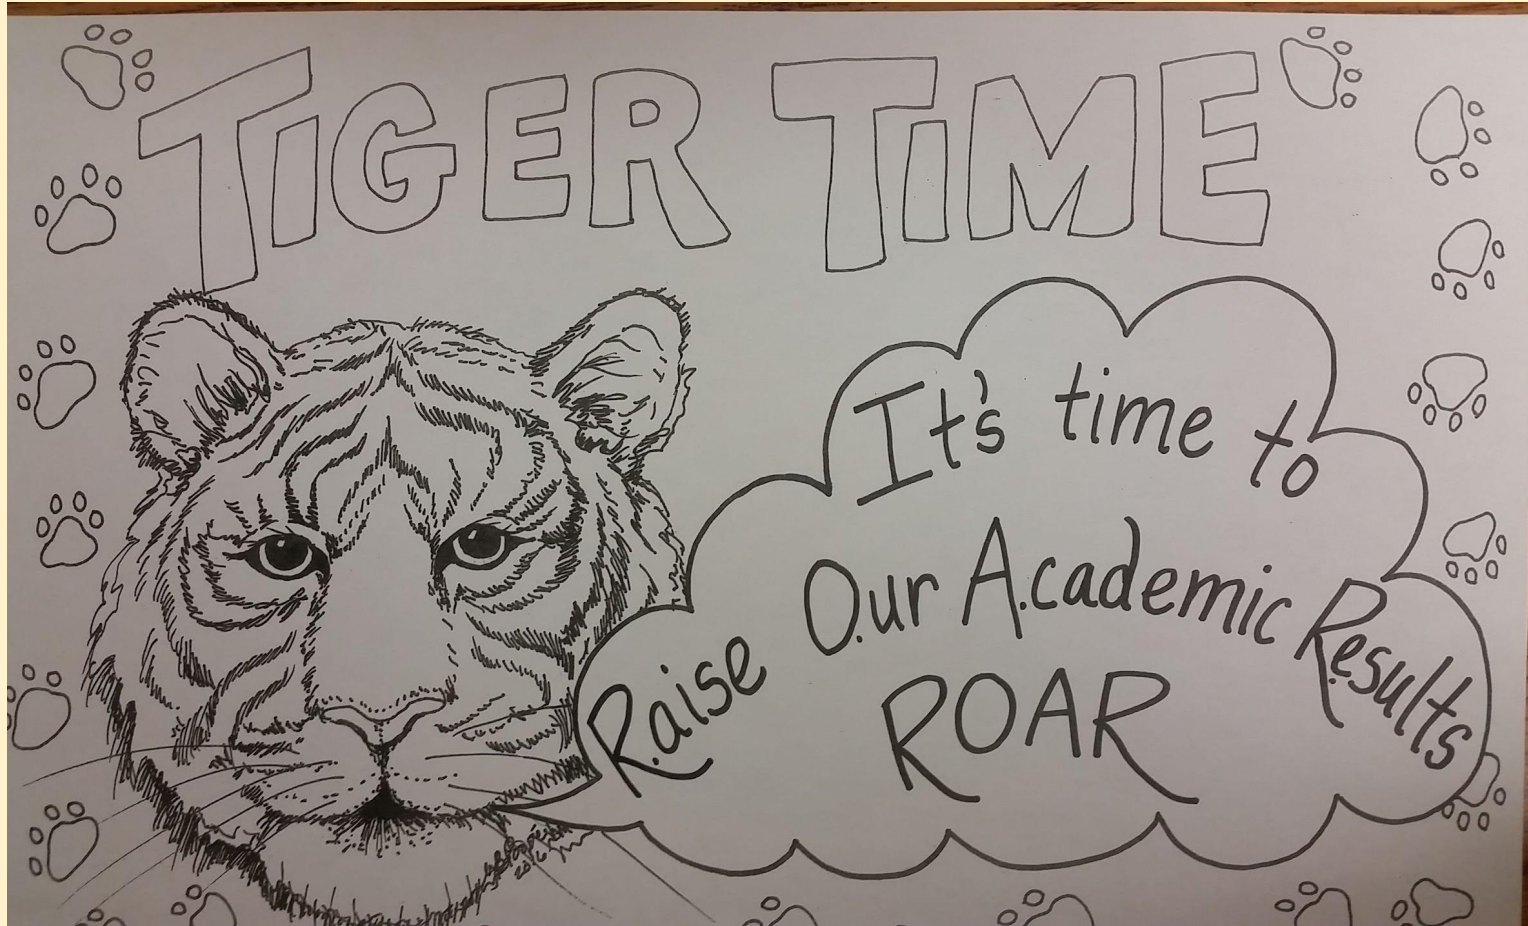 TIGER TIME
It's time to
Raise Our Academic Results
ROAR
2016